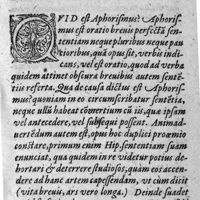 QVID est Aphorismus? Aphoris-
mus est oratio breuis perfectā sen-
tentiam neque pluribus neque pau
tioribus, quā opus sit, verbis indi-
cans, vel est oratio, quod ad verba
quidem attinet obscura breuibus autem sentē-
tiis referta. Qua de causa dictus est Aphoris-
mus? quoniam in eo circumscribatur sentētia,
neque ullū habeat cōmertium cū iis, quæ ipsam
vel antecedere, vel subsequi possent. Animad-
uertēdum autem est, opus hoc duplici proœmio
cōstare, primum enim Hip. sententiam suam
enunciat, qua quidem in re videtur potius de-
hortari & deterrere studiosos, quàm eos accen-
dere ad hanc artem capessendam, ut cum dicit
(vita breuis, ars vero longa.) Deinde suadet